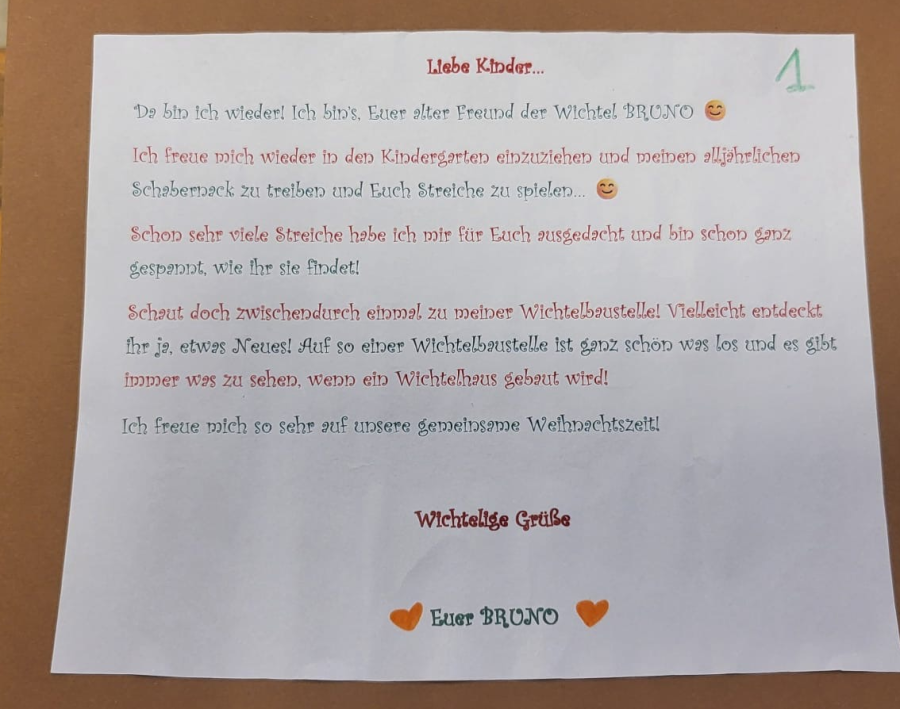 Liebe Kinder...
1
Da bin ich wieder! Ich bin's, Euer alter Freund der Wichtel BRUNO 😊
Ich freue mich wieder in den Kindergarten einzuziehen und meinen alljährlichen
Schabernack zu treiben und Euch Streiche zu spielen... 😊
Schon sehr viele Streiche habe ich mir für Euch ausgedacht und bin schon ganz
gespannt, wie ihr sie findet!
Schaut doch zwischendurch einmal zu meiner Wichtelbaustelle! Vielleicht entdeckt
ihr ja, etwas Neues! Auf so einer Wichtelbaustelle ist ganz schön was los und es gibt
immer was zu sehen, wenn ein Wichtelhaus gebaut wird!
Ich freue mich so sehr auf unsere gemeinsame Weihnachtszeit!
Wichtelige Grüße
Euer BRUNO